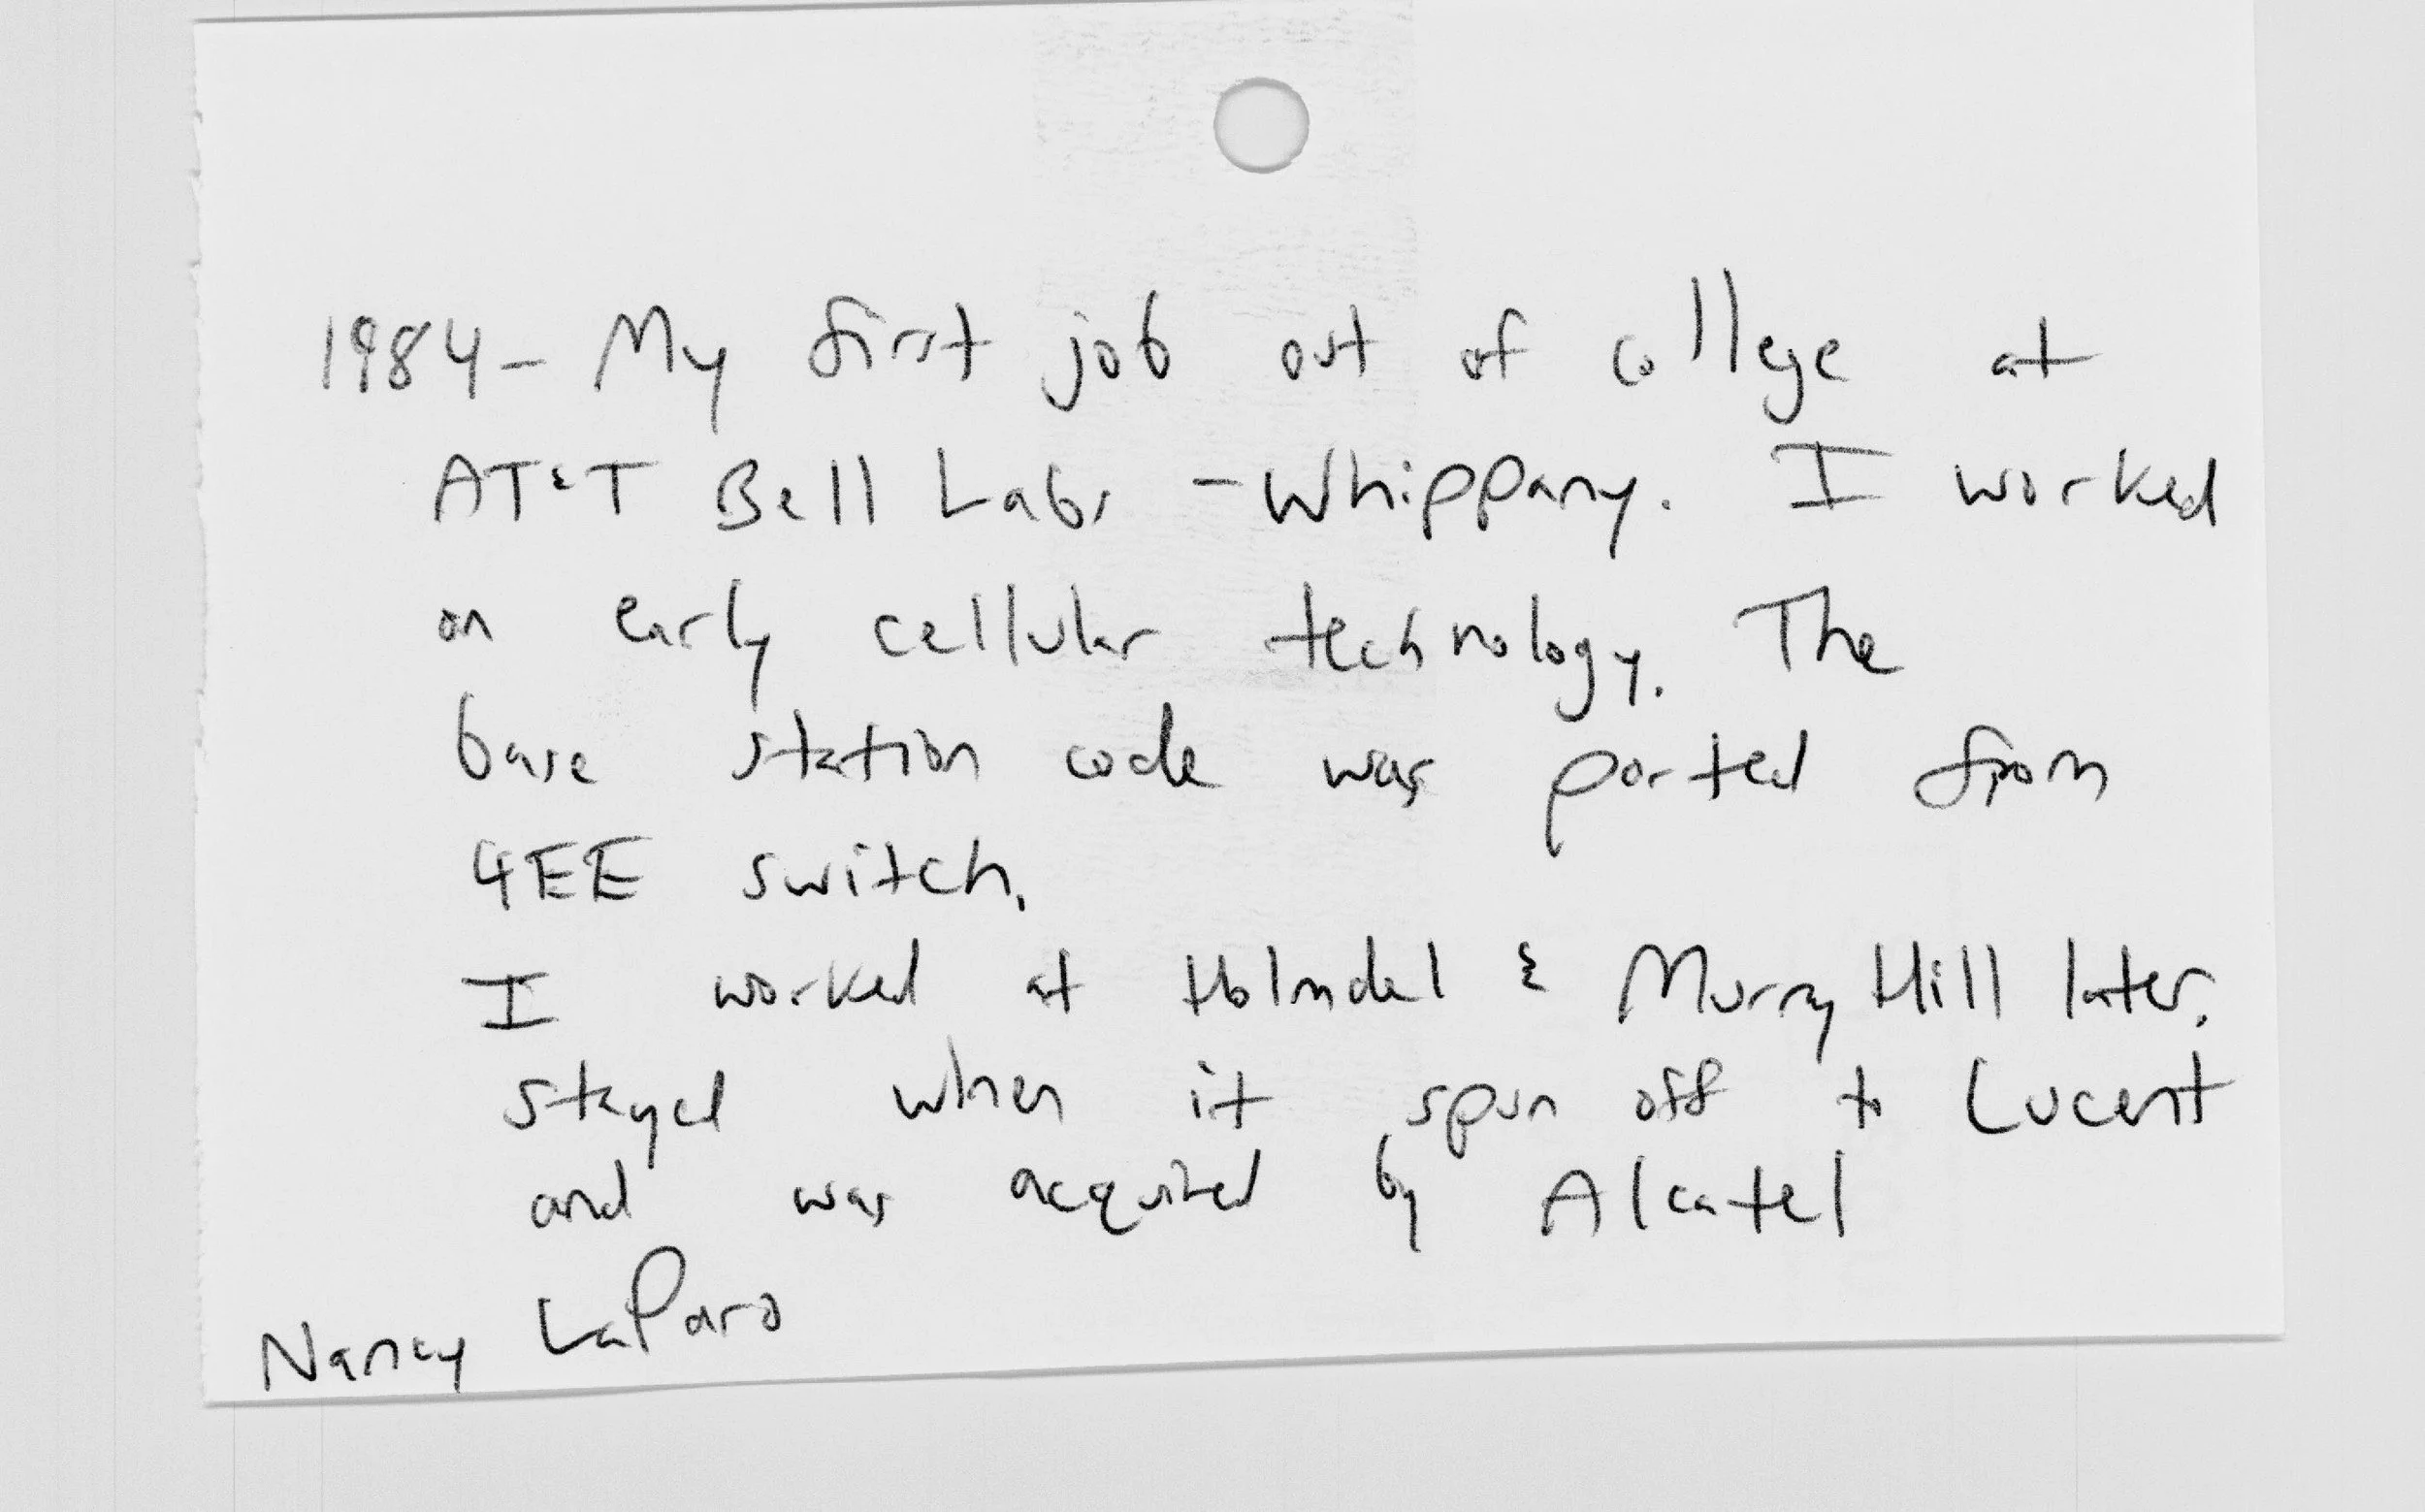 1984- My first job out of college at
AT&T Bell Labs - Whippany. I worked
on early cellular technology. The
base station code was ported from
4EE switch.
I worked at Holmdel & Murry Hill later.
stayed when it spun off to Lucent
and was acquired by Alcatel
Nancy LaParo